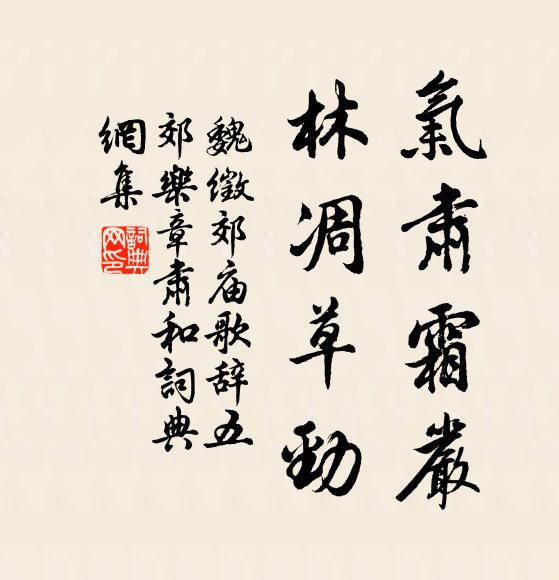 氣肅霜嚴
林凋草勁
魏徵郊庙歌辞五
郊樂章肅和詞典
網集
詞典
网印